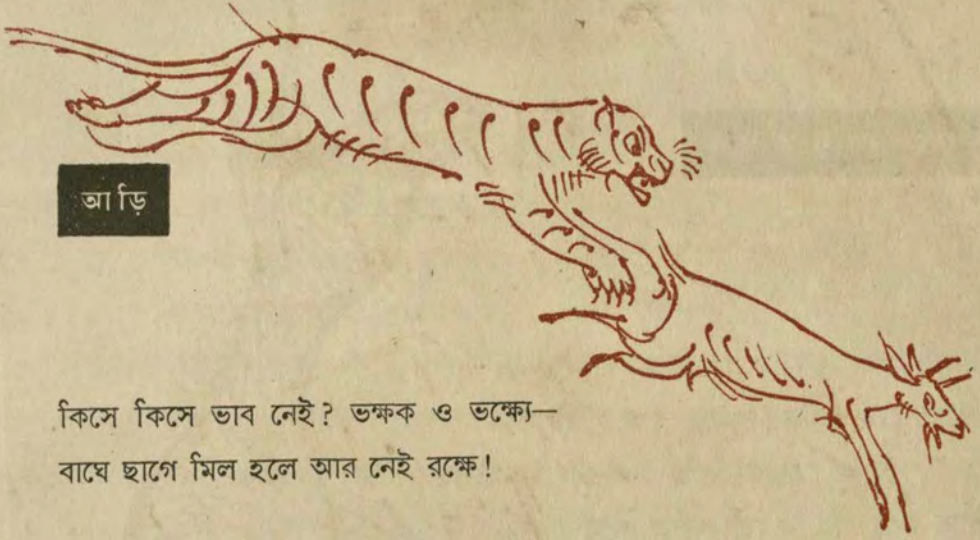 আড়ি
কিসে কিসে ভাব নেই? ভক্ষক ও ভক্ষ্যে—
বাঘে ছাগে মিল হলে আর নেই রক্ষে!